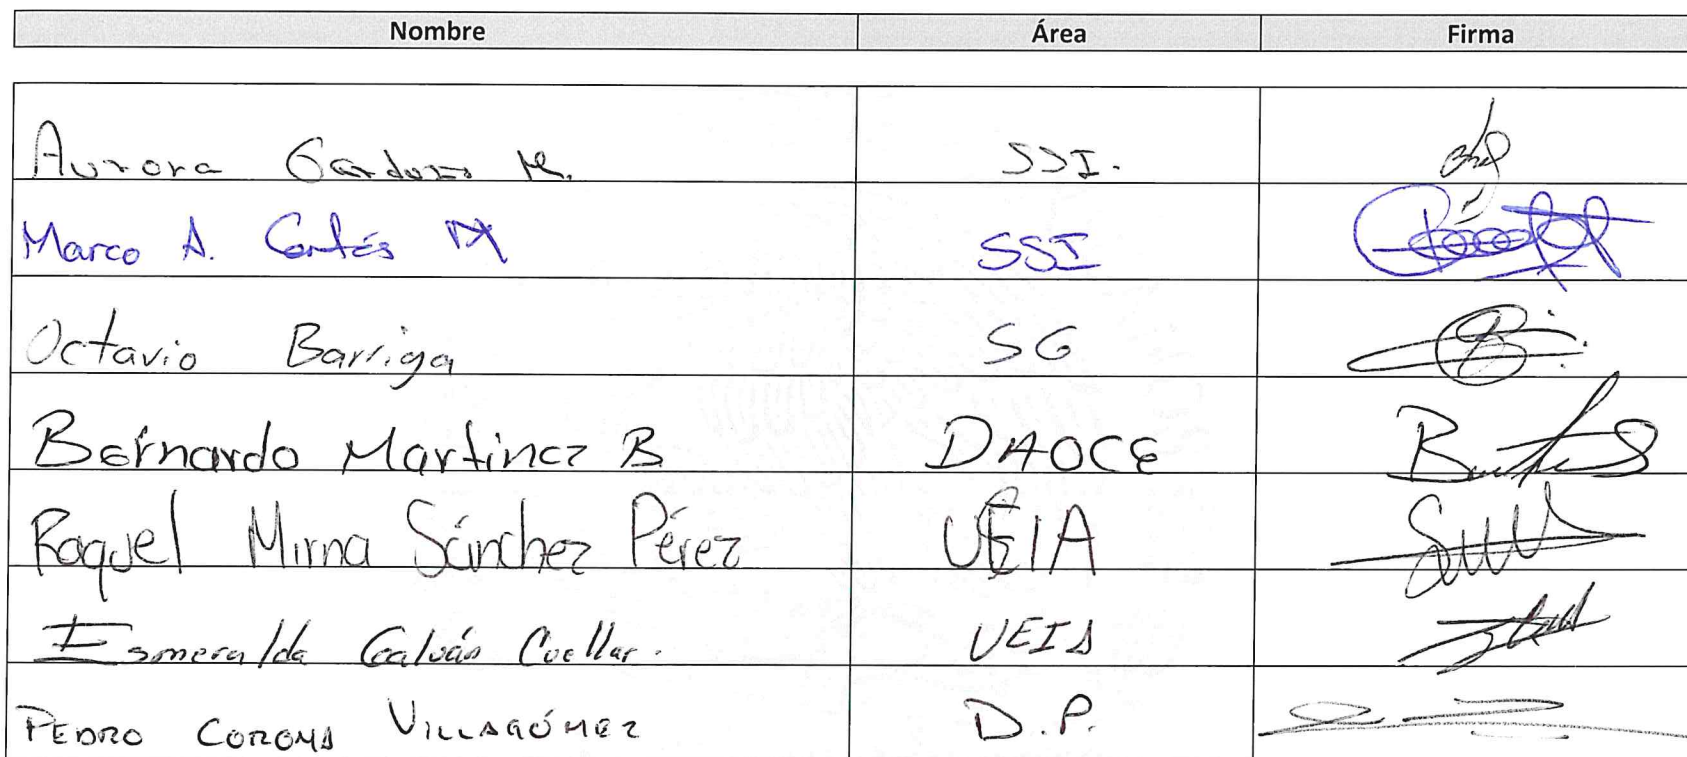 Nombre Área Firma
Aurora Cardoso M. SSI.
Marco A. Cortés M SSI
Octavio Barriga SG
Bernardo Martinez B DAOCE
Raquel Mirna Sánchez Pérez UEIA
Esmeralda Galván Cuellar. UEIA
PEDRO CORONA VILLAGÓMEZ D.P.